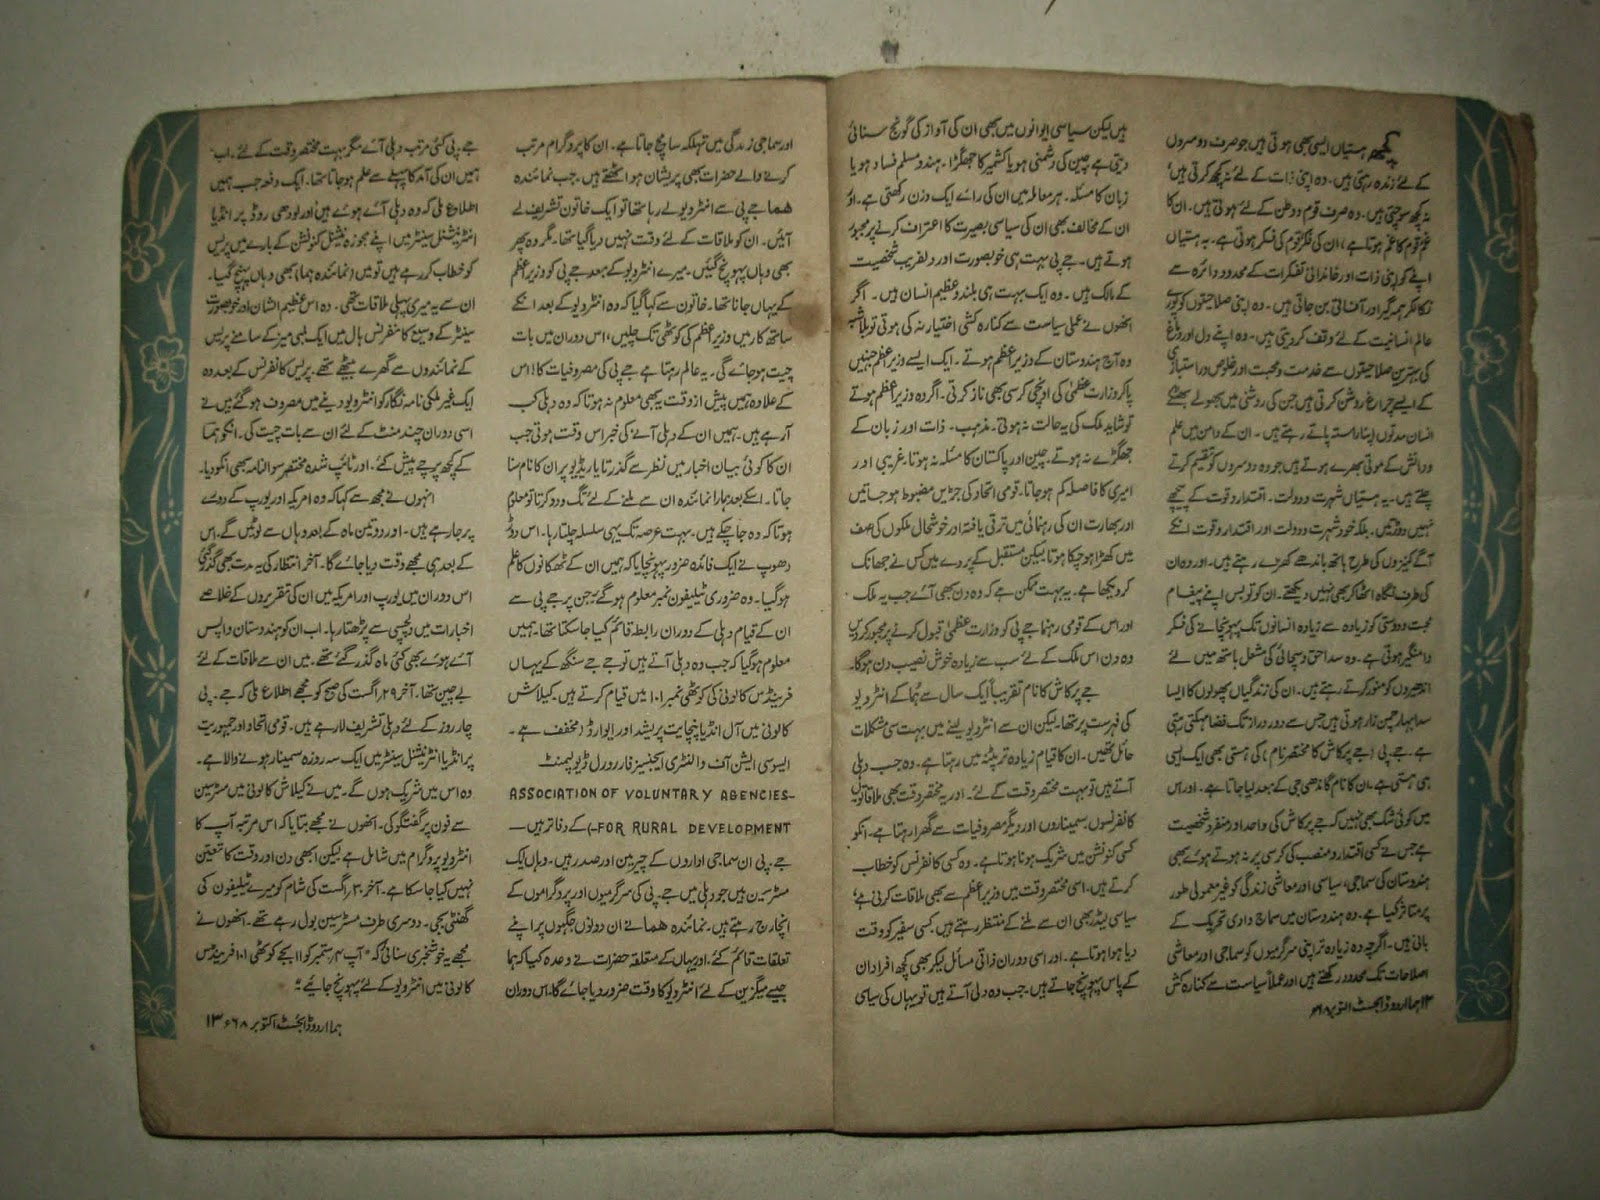 کچھ ہستیاں ایسی بھی ہوتی ہیں جو صرف دوسروں
کے لئے زندہ رہتی ہیں۔ وہ اپنی ذات کے لئے نہ کچھ کرتی ہیں'
نہ کچھ سوچتی ہیں۔ وہ صرف قوم و وطن کے لئے ہوتی ہیں۔ ان کا
غم قوم کا غم ہوتا ہے، ان کی فکر قوم کی فکر ہوتی ہے۔ یہ ہستیاں
اپنے کو اپنی ذات اور خاندانی تفکرات کے محدود دائرہ سے
نکالکر ہمہ گیر اور آفاقی بن جاتی ہیں۔ وہ اپنی صلاحیتوں کو پورے
عالم انسانیت کے لئے وقف کر دیتی ہیں۔ وہ اپنے دل اور دماغ
کی بہترین صلاحیتوں سے خدمت و محبت اور خلوص اور راستبازی
کے ایسے چراغ روشن کرتی ہیں جن کی روشنی میں بھولے بھٹکے
انسان مدتوں اپنا راستہ پاتے رہتے ہیں۔ ان کے دامن میں علم
و دانش کے موتی بھرے ہوتے ہیں جو وہ دوسروں کو تقسیم کرتے
چلتے ہیں۔ یہ ہستیاں شہرت و دولت۔ اقتدار و قوت کے پیچھے
نہیں دوڑتیں۔ بلکہ خود شہرت و دولت اور اقتدار و قوت انکے
آگے کنیزوں کی طرح ہاتھ باندھے کھڑے رہتے ہیں۔ اور وہ ان
کی طرف نگاہ اٹھا کر بھی نہیں دیکھتے۔ ان کو تو بس اپنے پیغام
محبت و دوستی کو زیادہ سے زیادہ انسانوں تک پہونچانے کی فکر
دامنگیر ہوتی ہے۔ وہ سدا حق و سچائی کی مشعل ہاتھ میں لئے
اندھیروں کو منور کرتے رہتے ہیں۔ ان کی زندگیاں پھولوں کا ایسا
سدا بہار چمن زار ہوتی ہیں جس سے دور دراز تک فضا مہکتی رہتی
ہے۔ جے پی (جے پرکاش کا مختصر نام) کی ہستی بھی ایک ایسی
ہی ہستی ہے۔ ان کا نام گاندھی جی کے بعد لیا جاتا ہے۔ اور اس
میں کوئی شک بھی نہیں کہ جے پرکاش کی واحد اور منفرد شخصیت
ہے جس نے کسی اقتدار و منصب کی کرسی پر نہ ہوتے ہوئے بھی
ہندوستان کی سماجی، سیاسی اور معاشی زندگی کو غیر معمولی طور
پر متاثر کیا ہے۔ وہ ہندوستان میں سماج وادی تحریک کے
بانی ہیں۔ اگرچہ وہ زیادہ تر اپنی سرگرمیوں کو سماجی اور معاشی
اصلاحات تک محدود رکھتے ہیں اور عملاً سیاست سے کنارہ کش
ہیں لیکن سیاسی ایوانوں میں بھی ان کی آواز کی گونج سنائی
دیتی ہے چین کی دشمنی ہو یا کشمیر کا جھگڑا۔ ہندو مسلم فساد ہو یا
زبان کا مسئلہ۔ ہر معاملہ میں ان کی رائے ایک وزن رکھتی ہے۔ اور
ان کے مخالف بھی ان کی سیاسی بصیرت کا اعتراف کرنے پر مجبور
ہوتے ہیں۔ جے پی بہت ہی خوبصورت اور دلفریب شخصیت
کے مالک ہیں۔ وہ ایک بہت ہی بلند و عظیم انسان ہیں۔ اگر
انھوں نے عملی سیاست سے کنارہ کشی اختیار نہ کی ہوتی تو بلاشبہ
وہ آج ہندوستان کے وزیر اعظم ہوتے۔ ایک ایسے وزیر اعظم جنہیں
پا کر وزارت عظمٰی کی اونچی کرسی بھی ناز کرتی۔ اگر وہ وزیر اعظم ہوتے
تو شاید ملک کی یہ حالت نہ ہوتی۔ مذہب۔ ذات اور زبان کے
جھگڑے نہ ہوتے۔ چین اور پاکستان کا مسئلہ نہ ہوتا۔ غریبی اور
امیری کا فاصلہ کم ہو جاتا۔ قومی اتحاد کی جڑیں مضبوط ہو جاتیں
اور بھارت ان کی رہنمائی میں ترقی یافتہ اور خوشحال ملکوں کی صف
میں کھڑا ہو چکا ہوتا لیکن مستقبل کے پردے میں کس نے جھانک
کر دیکھا ہے۔ یہ بہت ممکن ہے کہ وہ دن بھی آئے جب یہ ملک
اور اس کے قومی رہنما جے پی کو وزارت عظمٰی قبول کرنے پر مجبور کر دیں
وہ دن اس ملک کے لئے سب سے زیادہ خوش نصیب دن ہوگا۔
جے پرکاش کا نام تقریباً ایک سال سے ہما کے انٹرویو
کی فہرست پر تھا۔ لیکن ان سے انٹرویو لینے میں بہت سی مشکلات
حائل تھیں۔ ان کا قیام زیادہ تر پٹنہ میں رہتا ہے۔ وہ جب دہلی
آتے ہیں تو بہت مختصر وقت کے لئے۔ اور یہ مختصر وقت بھی ملاقاتوں،
کانفرنسوں، سمیناروں اور دیگر مصروفیات سے گھرا رہتا ہے۔ انکو
کسی کنونشن میں شریک ہونا ہوتا ہے۔ وہ کسی کانفرنس کو خطاب
کرتے ہیں۔ اسی مختصر وقت میں وزیر اعظم سے بھی ملاقات کرنی ہے،
سیاسی لیڈر بھی ان سے ملنے کے منتظر رہتے ہیں، کسی سفیر کو وقت
دیا ہوا ہوتا ہے۔ اور اسی دوران ذاتی مسائل لیکر بھی کچھ افراد ان
کے پاس پہونچ جاتے ہیں۔ جب وہ دلی آتے ہیں تو یہاں کی سیاسی
۱۲ ہما اردو ڈائجسٹ اکتوبر ۶۸ء
اور سماجی زندگی میں تہلکہ سا مچ جاتا ہے۔ ان کا پروگرام مرتب
کرنے والے حضرات بھی پریشان ہو اٹھتے ہیں۔ جب نمائندہ
ھما جے پی سے انٹرویو لے رہا تھا تو ایک خاتون تشریف لے
آئیں۔ ان کو ملاقات کے لئے وقت نہیں دیا گیا تھا۔ مگر وہ پھر
بھی وہاں پہونچ گئیں۔ میرے انٹرویو کے بعد جے پی کو وزیر اعظم
کے یہاں جانا تھا۔ خاتون سے کہا گیا کہ وہ انٹرویو کے بعد انکے
ساتھ کار میں وزیر اعظم کی کوٹھی تک چلیں، اس دوران میں بات
چیت ہو جائے گی۔ یہ عالم رہتا ہے جے پی کی مصروفیات کا! اس
کے علاوہ ہمیں پیش از وقت یہ بھی معلوم نہ ہوتا کہ وہ دہلی کب
آ رہے ہیں۔ ہمیں ان کے دہلی آنے کی خبر اس وقت ہوتی جب
ان کا کوئی بیان اخبار میں نظر سے گذرتا یا ریڈیو پر ان کا نام سنا
جاتا۔ اسکے بعد ہمارا نمائندہ ان سے ملنے کے لئے تگ و دو کرتا تو معلوم
ہوتا کہ وہ جا چکے ہیں۔ بہت عرصہ تک یہی سلسلہ چلتا رہا۔ اس دوڑ
دھوپ نے ایک فائدہ ضرور پہونچایا کہ ہمیں ان کے ٹھکانوں کا علم
ہو گیا۔ وہ ضروری ٹیلیفون نمبر معلوم ہو گئے جن پر جے پی سے
ان کے قیام دہلی کے دوران رابطہ قائم کیا جا سکتا تھا۔ ہمیں
معلوم ہو گیا کہ جب وہ دہلی آتے ہیں تو جے جے سنگھ کے یہاں
فرینڈس کالونی کی کوٹھی نمبر ۱۰۱ میں قیام کرتے ہیں۔ کیلاش
کالونی میں آل انڈیا پنچایت پریشد اور ایوارڈ (مخفف ہے۔
ایسوسی ایشن آف والنٹری ایجنسیز فار رورل ڈیولپمنٹ
ASSOCIATION OF VOLUNTARY AGENCIES-
FOR RURAL DEVELOPMENT-) کے دفاتر ہیں—
جے پی ان سماجی اداروں کے چیرمین اور صدر ہیں۔ وہاں ایک
مسٹر سین ہیں جو دہلی میں جے پی کی سرگرمیوں اور پروگراموں کے
انچارج رہتے ہیں۔ نمائندہ ھما نے ان دونوں جگہوں پر اپنے
تعلقات قائم کئے، اور یہاں کے متعلقہ حضرات نے وعدہ کیا کہ ہما
جیسے میگزین کے لئے انٹرویو کا وقت ضرور دیا جائے گا۔ اس دوران
جے پی کئی مرتبہ دہلی آئے مگر بہت مختصر وقت کے لئے۔ اب
ہمیں ان کی آمد کا پہلے سے علم ہو جاتا تھا۔ ایک دفعہ جب ہمیں
اطلاع ملی کہ وہ دہلی آئے ہوئے ہیں اور لودھی روڈ پر انڈیا
انٹرنیشنل سینٹر میں اپنے مجوزہ نیشنل کنونشن کے بارے میں پریس
کو خطاب کر رہے ہیں تو میں (نمائندہ ہما) بھی وہاں پہنچ گیا۔
ان سے یہ میری پہلی ملاقات تھی۔ وہ اس عظیم الشان اور خوبصورت
سینٹر کے وسیع کانفرنس ہال میں ایک لمبی میز کے سامنے پریس
کے نمائندوں سے گھرے بیٹھے تھے۔ پریس کانفرنس کے بعد وہ
ایک غیر ملکی نامہ نگار کو انٹرویو دینے میں مصروف ہو گئے میں نے
اسی دوران چند منٹ کے لئے ان سے بات چیت کی۔ انکو ہما
کے کچھ پرچے پیش کئے۔ اور ٹائپ شدہ مختصر سوالنامہ بھی انکو دیا۔
انہوں نے مجھ سے کہا کہ وہ امریکہ اور یورپ کے دورے
پر جا رہے ہیں۔ اور دو تین ماہ کے بعد وہاں سے لوٹیں گے۔ اس
کے بعد ہی مجھے وقت دیا جائے گا۔ آخر انتظار کی یہ مدت بھی گذر گئی
اس دوران میں یورپ اور امریکہ میں ان کی تقریروں کے خلاصے
اخبارات میں دلچسپی سے پڑھتا رہا۔ اب ان کو ہندوستان واپس
آئے ہوئے بھی کئی ماہ گذر گئے تھے۔ میں ان سے ملاقات کے لئے
بے چین تھا۔ آخر ۲۹ اگست کی صبح کو مجھے اطلاع ملی کہ جے۔ پی
چار روز کے لئے دہلی تشریف لا رہے ہیں۔ قومی اتحاد اور جمہوریت
پر انڈیا انٹرنیشنل سینٹر میں ایک سہ روزہ سمینار ہونے والا ہے۔
وہ اس میں شریک ہوں گے۔ میں نے کیلاش کالونی میں مسٹر سین
سے فون پر گفتگو کی۔ انھوں نے مجھے بتایا کہ اس مرتبہ آپ کا
انٹرویو پروگرام میں شامل ہے لیکن ابھی دن اور وقت کا تعین
نہیں کیا جا سکتا ہے۔ آخر ۳۰ اگست کی شام کو میرے ٹیلیفون کی
گھنٹی بجی۔ دوسری طرف مسٹر سین بول رہے تھے۔ انھوں نے
مجھے یہ خوشخبری سنائی کہ "آپ ۳ ستمبر کو ۱۱ بجے کوٹھی ۱۰۱ فرینڈس
کالونی میں انٹرویو کے لئے پہونچ جائیے"
ہما اردو ڈائجسٹ اکتوبر ۶۸ء ۱۳